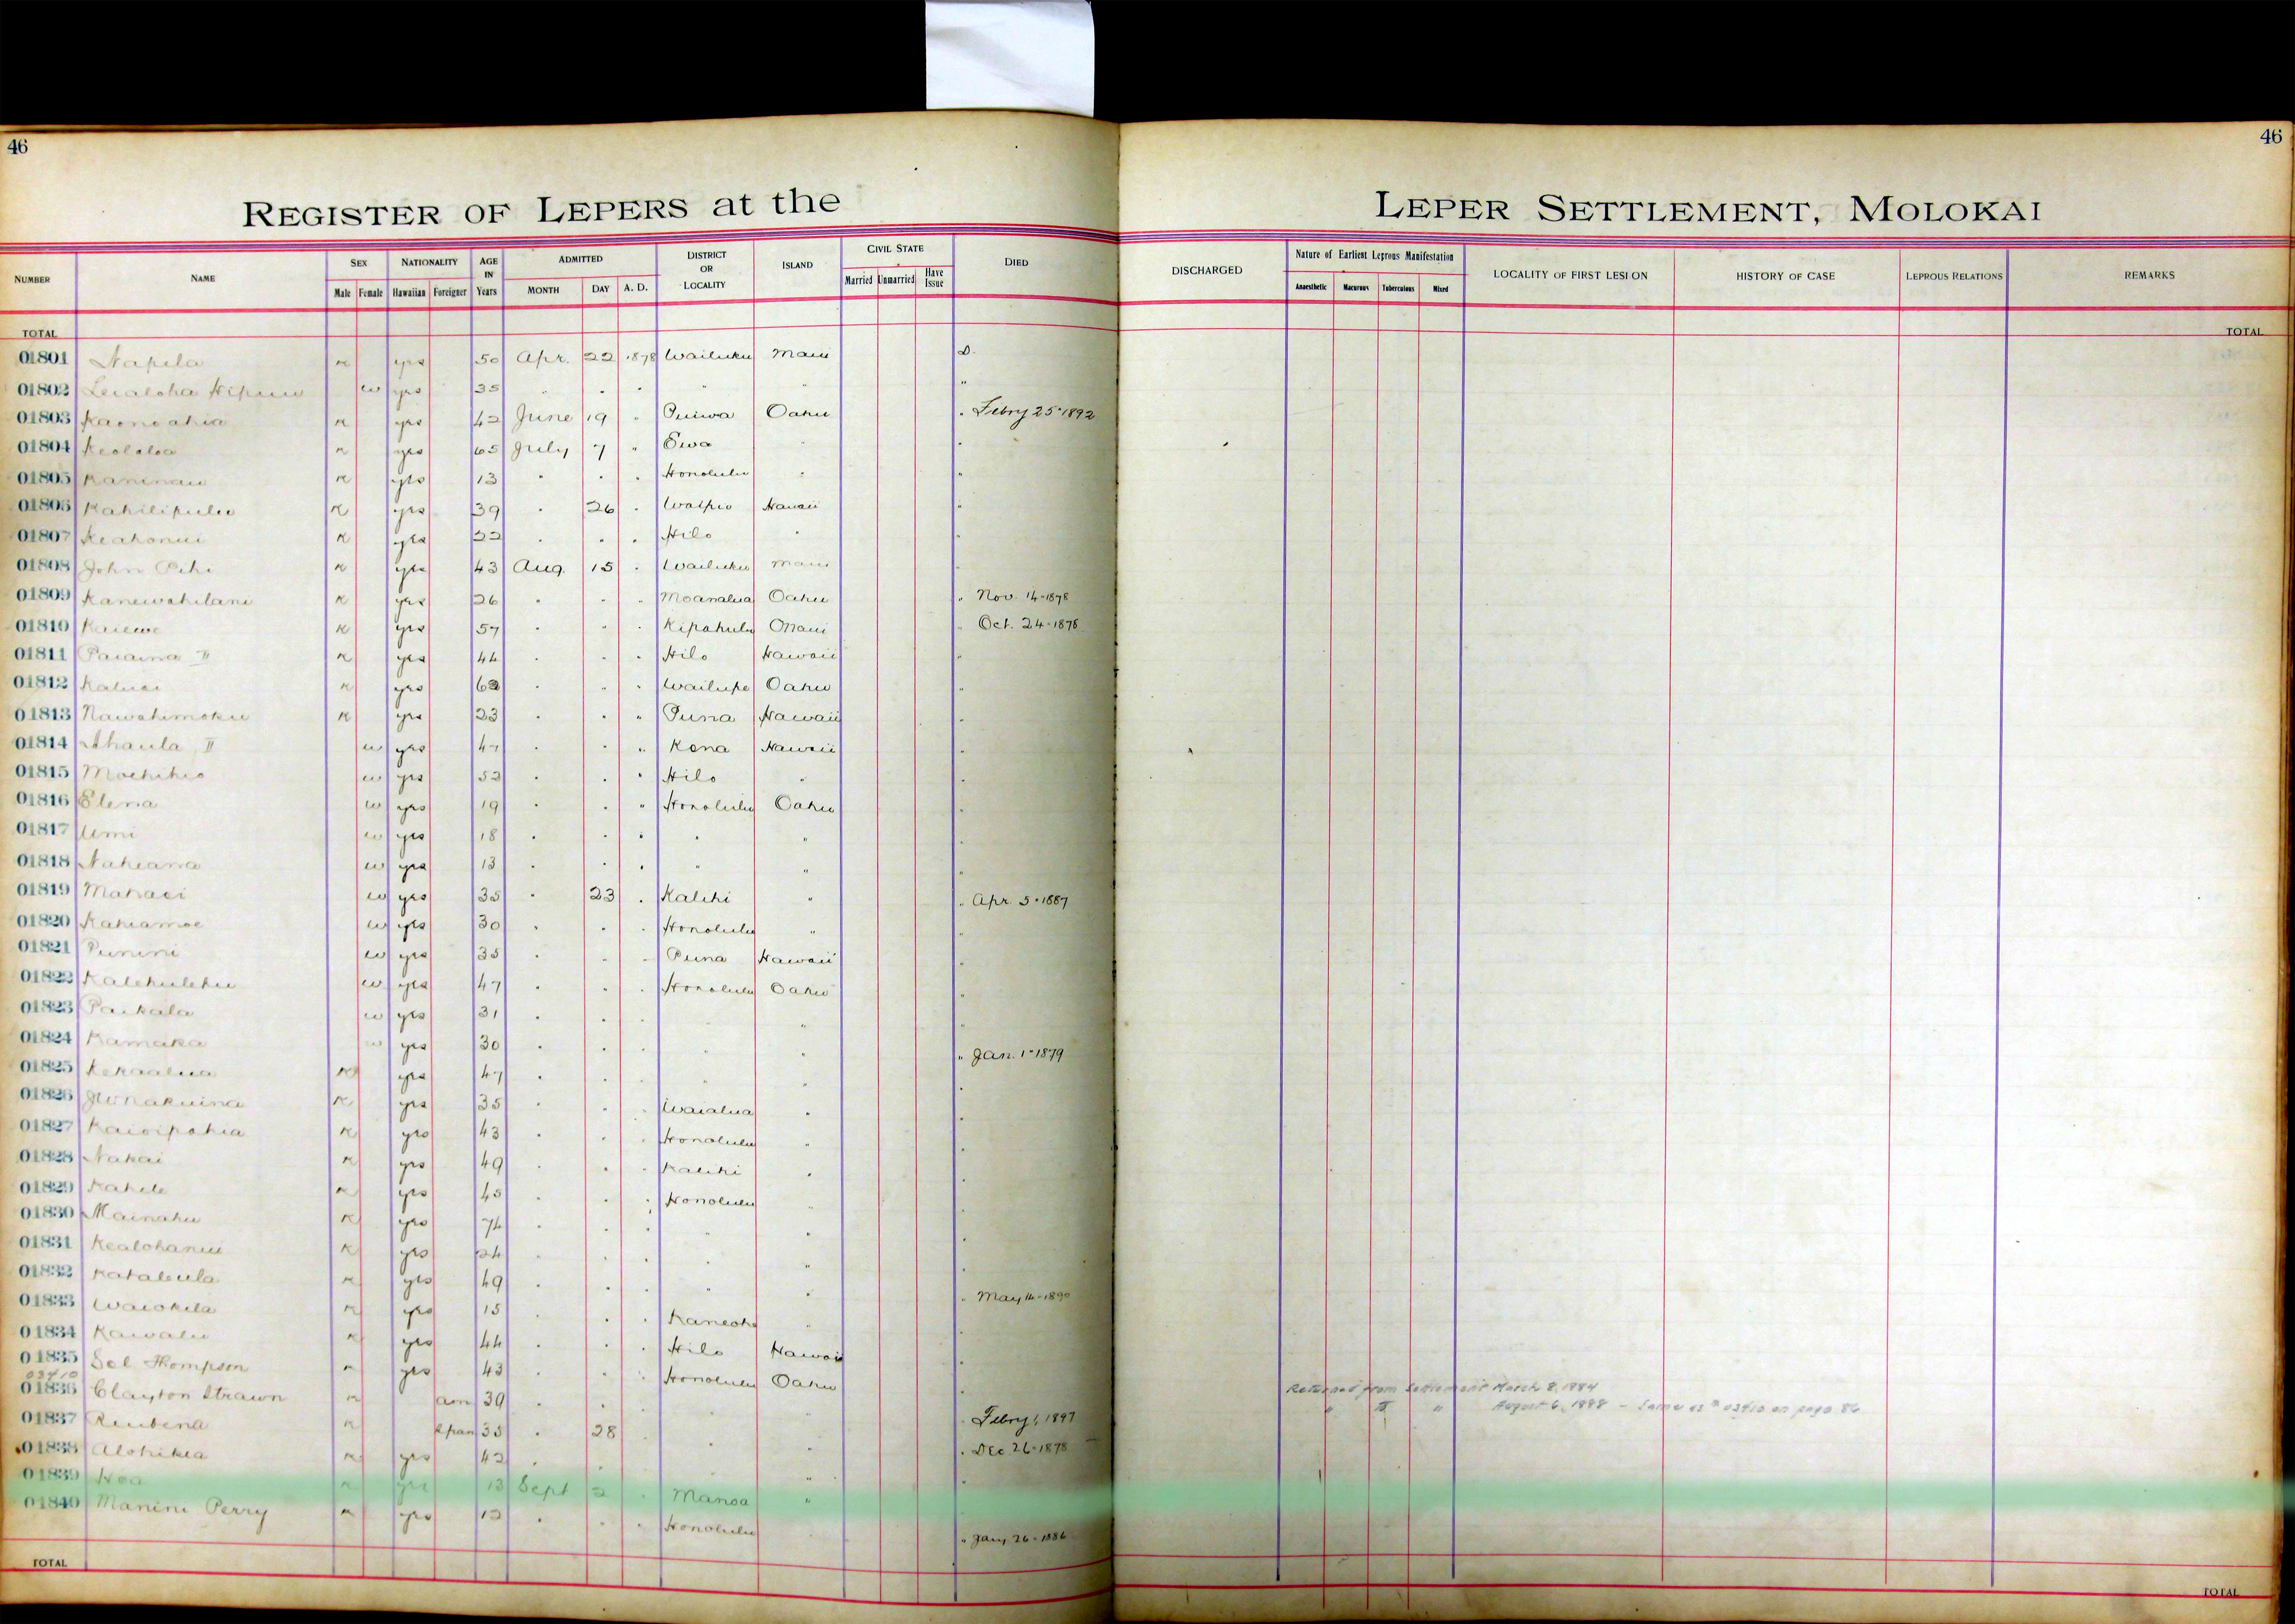 46
46
REGISTER OF LEPERS at the LEPER SETTLEMENT, MOLOKAI
NUMBER NAME SEX Male Female NATIONALITY Hawaiian Foreigner AGE IN Years ADMITTED MONTH DAY A. D. DISTRICT OR LOCALITY ISLAND CIVIL STATE Married Unmarried Have Issue DIED DISCHARGED Nature of Earliest Leprous Manifestation Anaesthetic Macurous Tuberculous Mixed LOCALITY OF FIRST LESION HISTORY OF CASE LEPROUS RELATIONS REMARKS
TOTAL TOTAL
01801 Napela m yes 50 Apr. 22 1878 Wailuku Maui D.
01802 Leialoha w yes 35 " " " " " "
01803 Kaonoahia m yes 42 June 19 " Puiwa Oahu " Febry 25-1892
01804 Keololoa m yes 65 July 7 " Ewa " "
01805 Kaninau m yes 13 " " " Honolulu " "
01806 Kahilipulu m yes 39 " 26 " Waipio Hawaii "
01807 Keahonui m yes 22 " " " Hilo " "
01808 John m yes 43 Aug. 15 " Wailuku Maui "
01809 Kanewahilani m yes 26 " " " Moanalua Oahu " Nov. 14-1878
01810 Kaiewe m yes 57 " " " Kipahulu Maui " Oct. 24-1878
01811 Paiaina II m yes 44 " " " Hilo Hawaii "
01812 Kaluai m yes 62 " " " Wailupe Oahu "
01813 Nawahimoku m yes 23 " " " Puna Hawaii "
01814 Ahaula II w yes 47 " " " Kona Hawaii "
01815 w yes 52 " " " Hilo " "
01816 Elena w yes 19 " " " Honolulu Oahu "
01817 Umi w yes 18 " " " " " "
01818 Nahiana w yes 13 " " " " " "
01819 Mahaei w yes 35 " 23 " Kalihi " " Apr. 5-1887
01820 Kahiamoe w yes 30 " " " Honolulu " "
01821 Punini w yes 35 " " " Puna Hawaii "
01822 Kalehulehu w yes 47 " " " Honolulu Oahu "
01823 Paikala w yes 31 " " " " "
01824 Kamaka w yes 30 " " " " " " Jan. 1-1879
01825 Kekaalua m yes 47 " " " " " "
01826 m yes 35 " " " Waialua " "
01827 Kaioipahia m yes 43 " " " Honolulu " "
01828 Nakai m yes 49 " " " Kalihi " "
01829 Kahele m yes 45 " " " Honolulu " "
01830 Mainahu m yes 74 " " " " "
01831 Kealohanui m yes 24 " " " " "
01832 m yes 49 " " " " " " May 14-1890
01833 Waiokila m yes 15 " " " Kaneohe " "
01834 Kawalu m yes 44 " " " Hilo Hawaii "
01835 Sol Thompson m yes 43 " " " Honolulu Oahu "
03410
01836 Clayton Strawn m am 39 " " " " " Febry 1, 1897 Returned from Settlement March 8, 1884
" " " August 6, 1888 - Same as # 03410 on page 86
01837 Reubena m Span 35 " 28 " " " Dec 26-1878
01838 Alohikea m yes 42 " " " "
01839 Hoa m yes 13 Sept 2 " Manoa " "
01840 Manini Perry m yes 12 " " " Honolulu " Jany 26-1886
TOTAL TOTAL